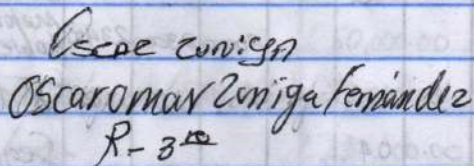 Oscar zuniga
OscarOmar Zuniga Fernández
R-3ro